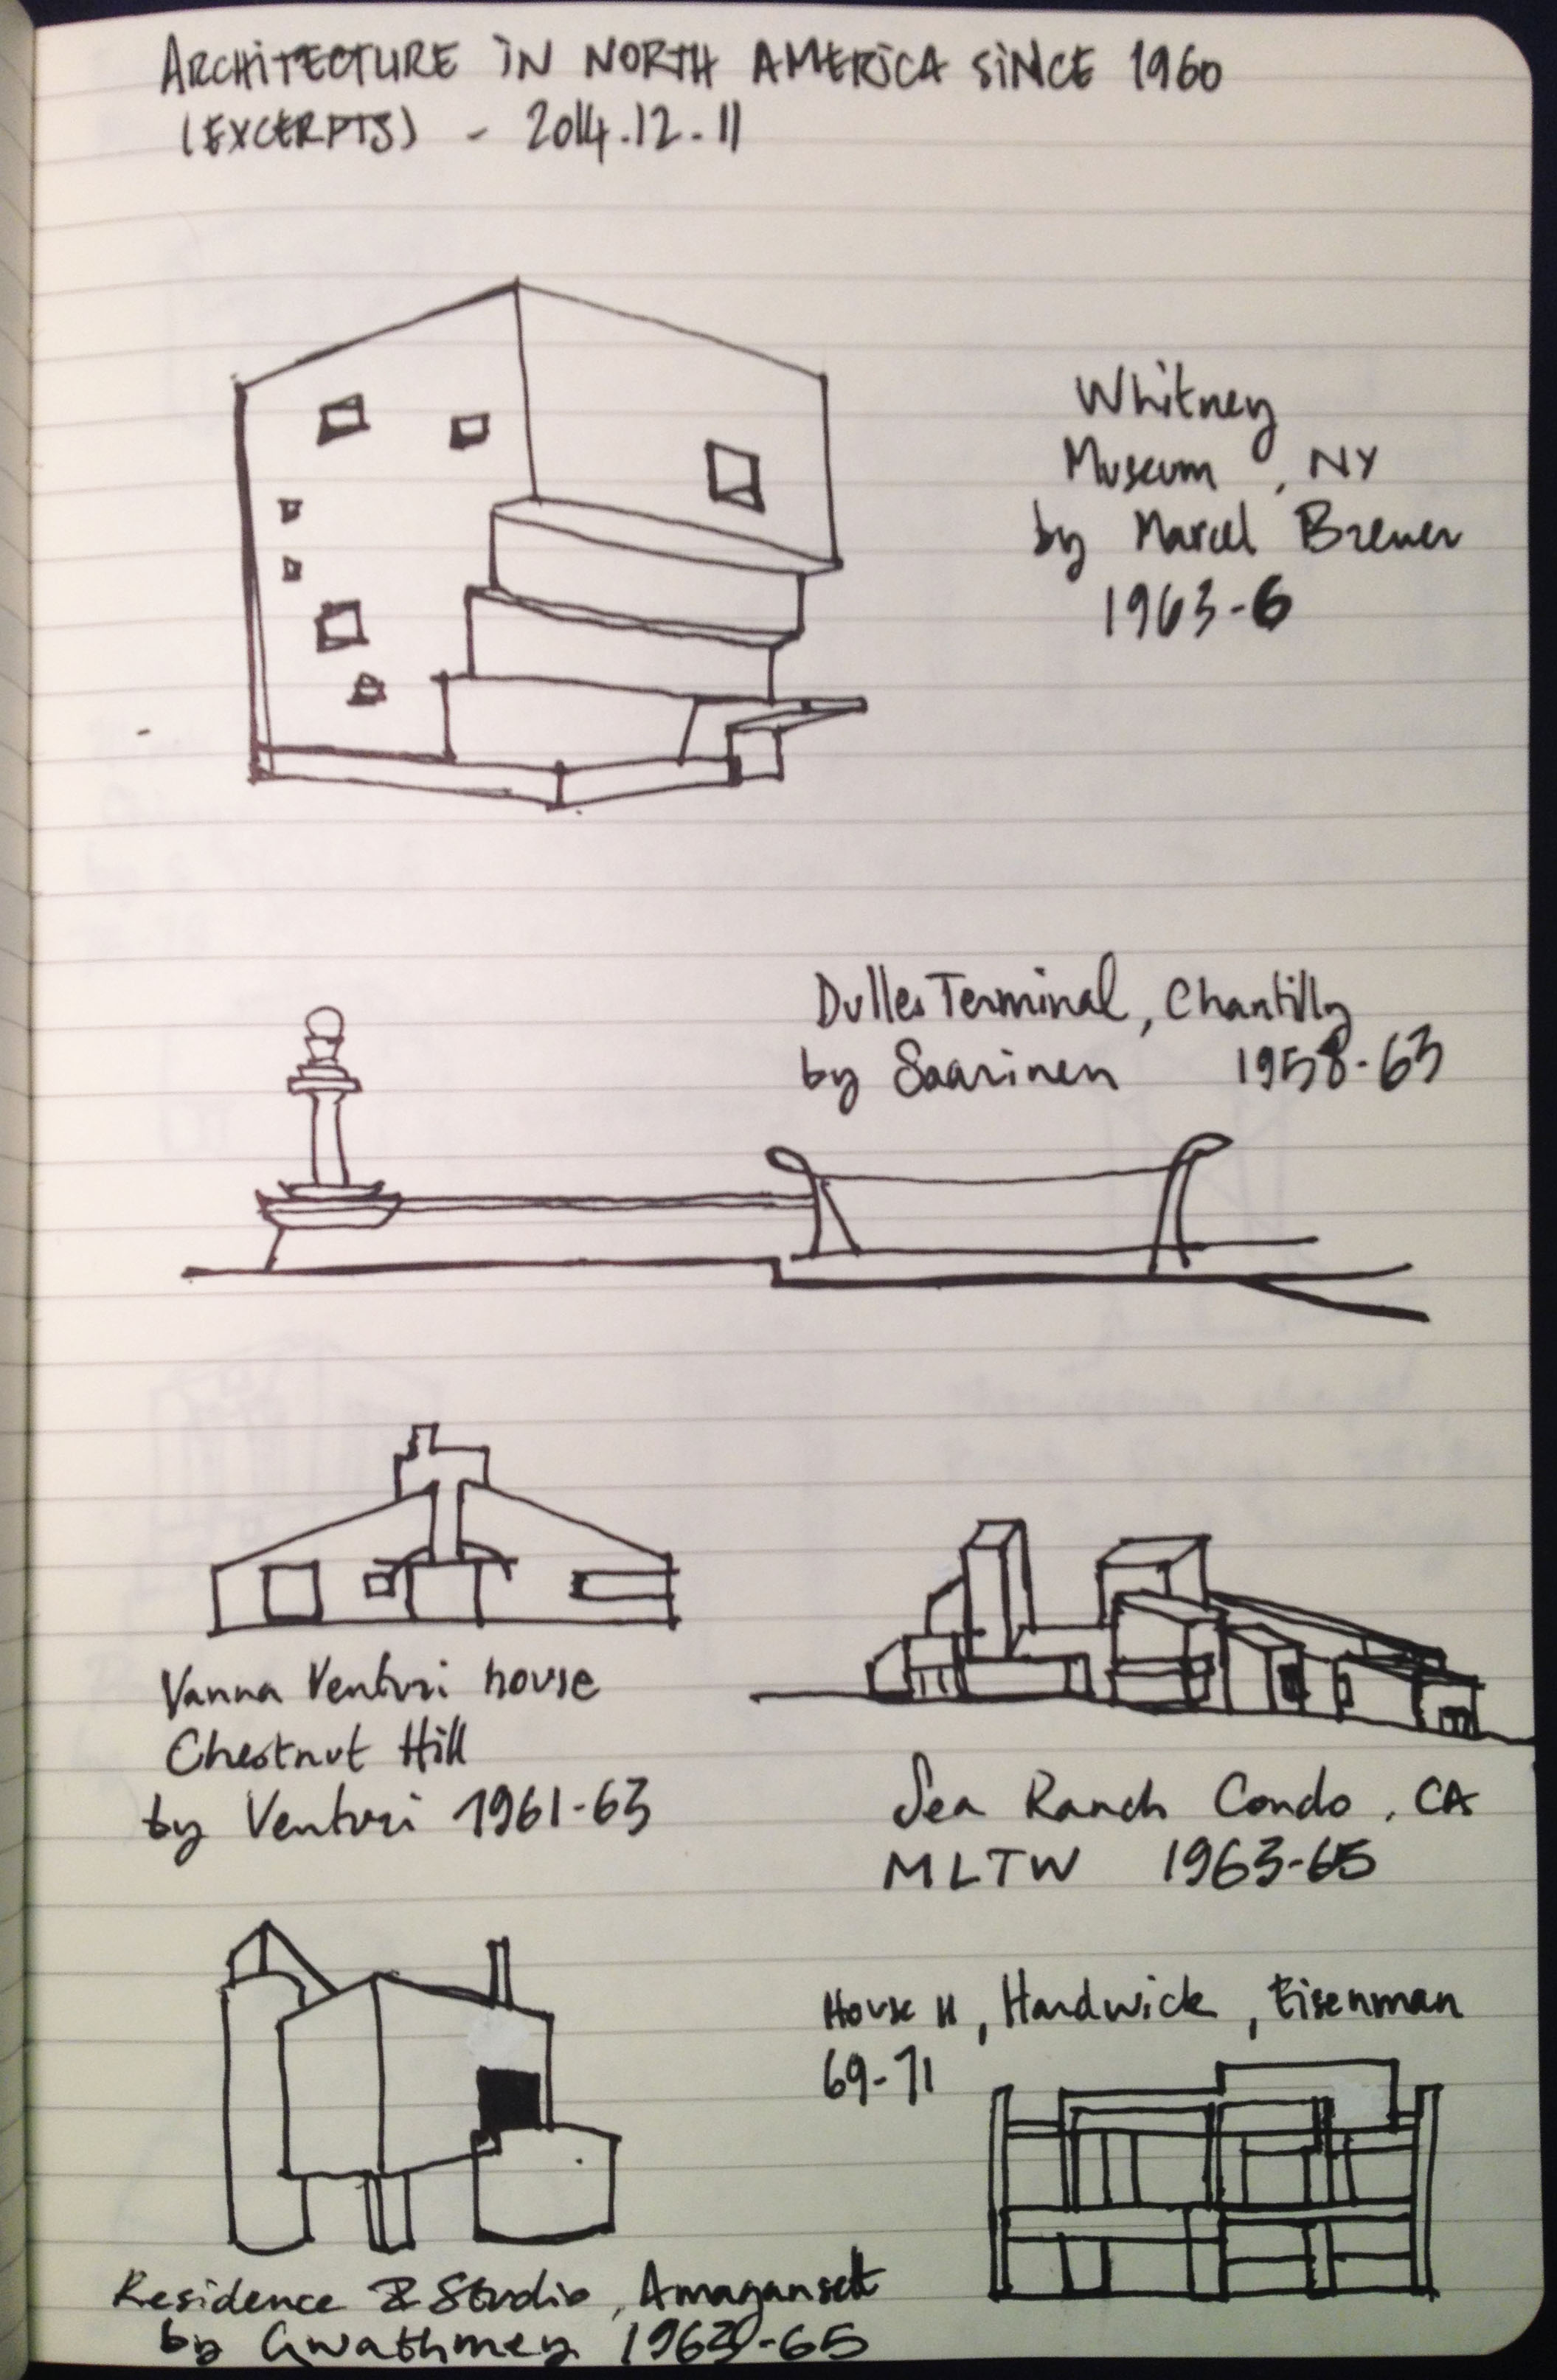 ARCHITECTURE IN NORTH AMERICA SINCE 1960
(EXCERPTS) - 2014.12.11
Whitney
Museum, NY
by Marcel Breuer
1963-6
Dulles Terminal, Chantilly
by Saarinen 1958-63
Vanna Venturi house
Chestnut Hill
by Venturi 1961-63
Sea Ranch Condo, CA
MLTW 1963-65
House II, Hardwick, Eisenman
69-71
Residence & Studio, Amagansett
by Gwathmey 1963-65